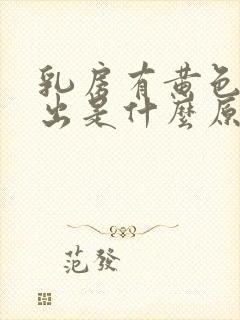 乳房有黄色
出是什麼原
范發